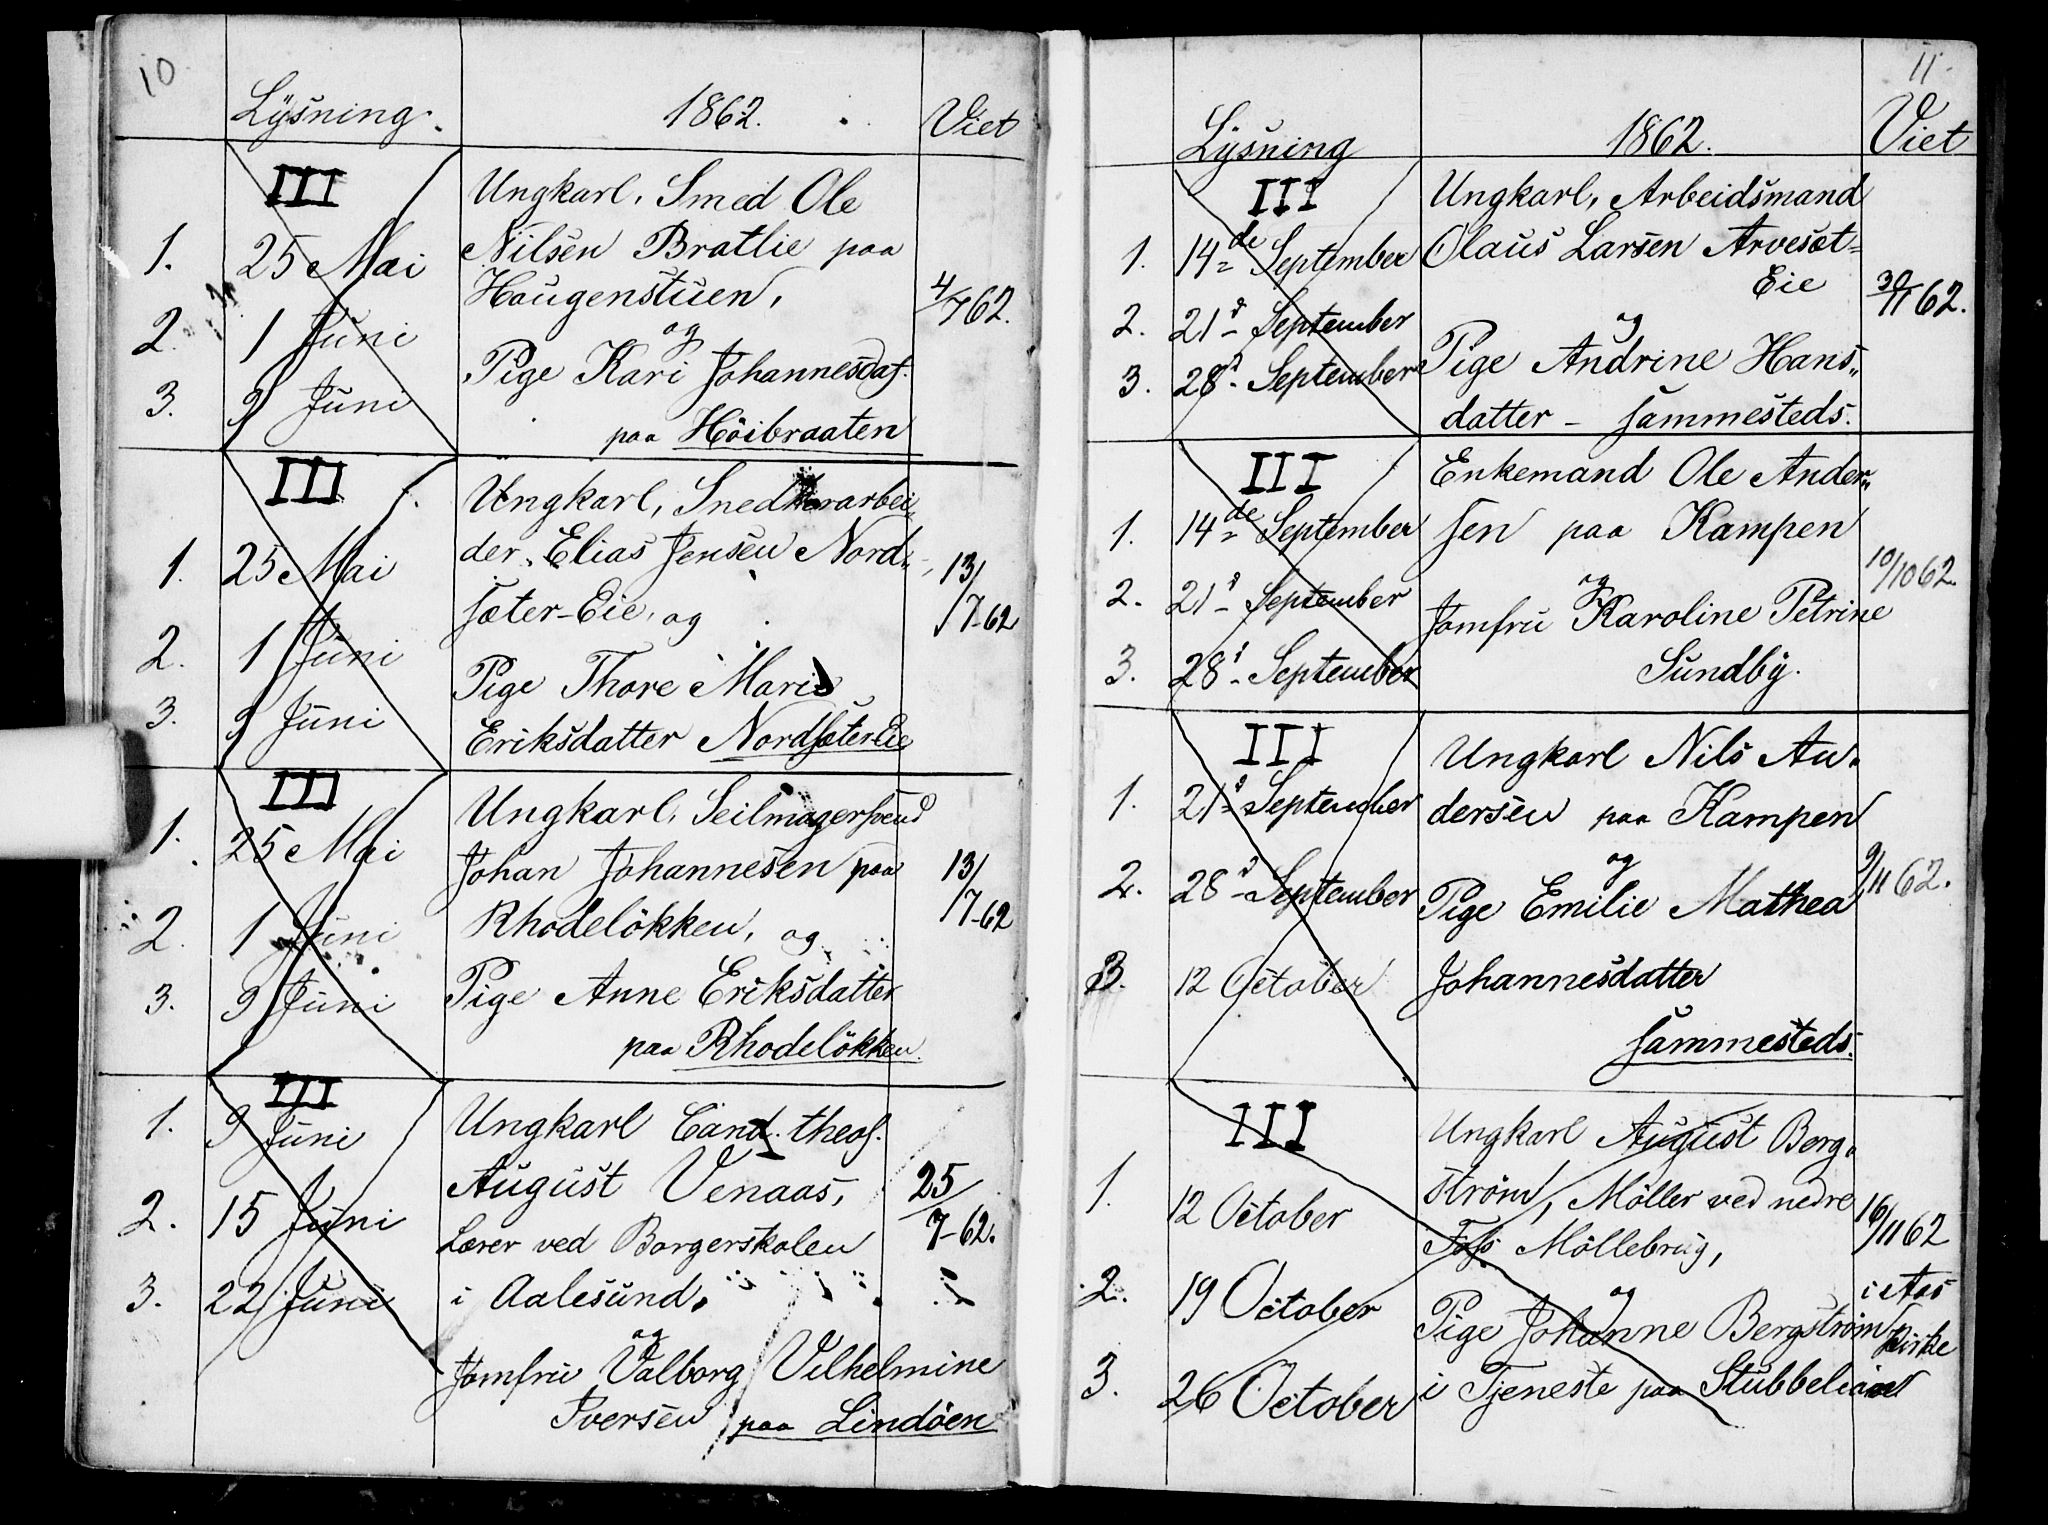 10
Lysning. 1862. Viet
III Ungkarl, Smed Ole
1. 25 Mai Nilsen Bratlie paa
Haugenstuen, 4/7 62.
2. 1 Juni og
Pige Kari Johannesdat.
3. 9 Juni
paa Höibraaten
III Ungkarl, Snedkerarbei„
1. 25 Mai der, Elias Jensen Nord„ 13/7-62
sæter-Eie, og
2. 1 Juni
Pige Thore Marie
3. 9 Juni
Eriksdatter Nordsæter-Eie
III Ungkarl, Seilmagersvend
1. 25 Mai Johan Johannesen paa 13/7-62
2. 1 Juni Rhodelökken, og
3. 9 Juni Pige Anne Eriksdatter
paa Rhodelökken.
III
1. 9 Juni Ungkarl Cand. theol.
August Venaas, 25/7-62.
2. 15 Juni Lærer ved Borgerskolen
3. 22 Juni i Aalesund,
og
Jomfru Valborg Vilhelmine
Iversen paa Lindöen
11
Lysning 1862. Viet
III Ungkarl, Arbeidsmand
1. 14de September Olaus Larsen Arveset-
Eie 30/11 62.
2. 21d September og
3. 28d September Pige Andrine Hans„
datter - sammesteds.
III Enkemand Ole Ander„
1. 14de September sen paa Kampen
10/10 62.
2. 21d September og
Jomfru Karoline Petrine
3. 28d September Sundby.
III Ungkarl Nils An„
1. 21d September dersen paa Kampen
og
2. 28d September Pige Emilie Mathea 9/11 62.
3. 12 October Johannesdatter
sammesteds.
III Ungkarl August Berg„
1. 12 October ström, Möller ved nedre 16/11 62
Foss Möllebrug,
2. 19 October og i Aas
Pige Johanne Bergström Kirke
3. 26 October i Tjeneste paa Stubbelian